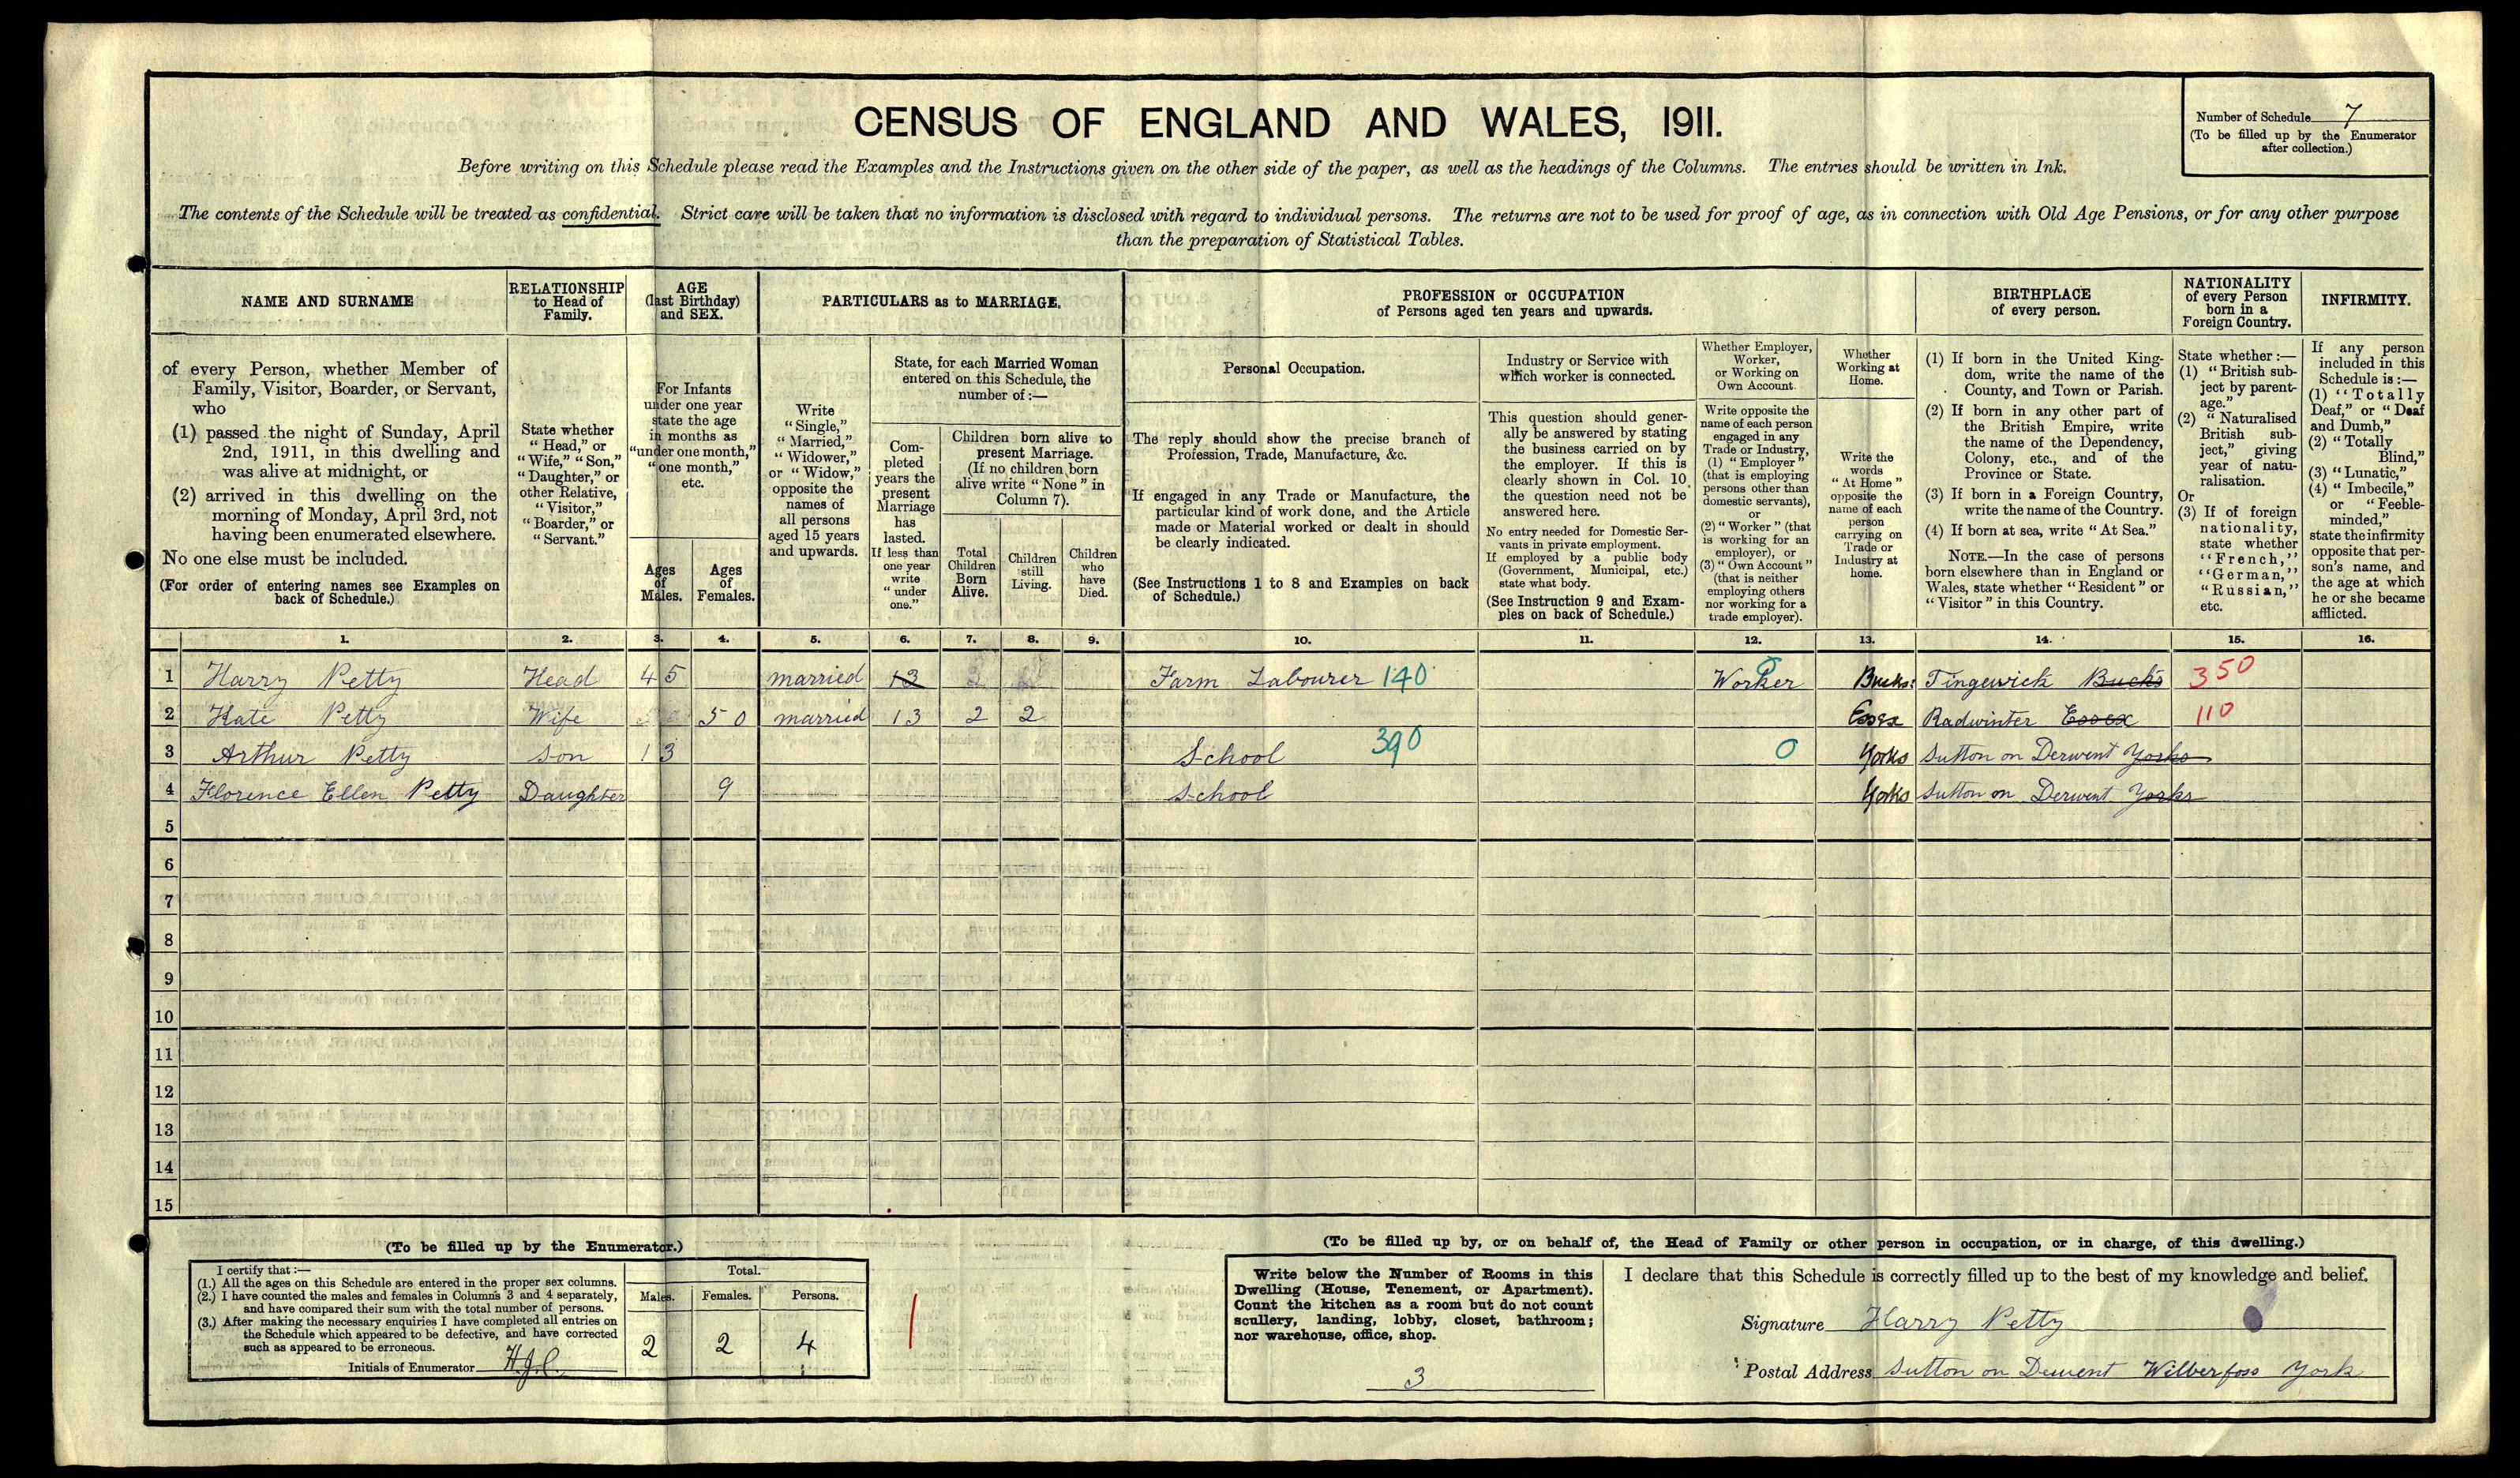 CENSUS OF ENGLAND AND WALES, 1911.
Number of Schedule 7
(To be filled up by the Enumerator
after collection.)
Before writing on this Schedule please read the Examples and the Instructions given on the other side of the paper, as well as the headings of the Columns. The entries should be written in Ink.
The contents of the Schedule will be treated as confidential. Strict care will be taken that no information is disclosed with regard to individual persons. The returns are not to be used for proof of age, as in connection with Old Age Pensions, or for any other purpose
than the preparation of Statistical Tables.
NAME AND SURNAME
of every Person, whether Member of
Family, Visitor, Boarder, or Servant,
who
(1) passed the night of Sunday, April
2nd, 1911, in this dwelling and
was alive at midnight, or
(2) arrived in this dwelling on the
morning of Monday, April 3rd, not
having been enumerated elsewhere.
No one else must be included.
(For order of entering names see Examples on
back of Schedule.)
RELATIONSHIP
to Head of
Family.
State whether
"Head," or
"Wife," "Son,"
"Daughter," or
other Relative,
"Visitor,"
"Boarder," or
"Servant."
AGE
(last Birthday)
and SEX.
For Infants
under one year
state the age
in months as
"under one month,"
"one month,"
etc.
Ages
of
Males.
Ages
of
Females.
PARTICULARS as to MARRIAGE.
Write
"Single,"
"Married,"
"Widower,"
or "Widow,"
opposite the
names of
all persons
aged 15 years
and upwards.
State, for each Married Woman
entered on this Schedule, the
number of:—
Com-
pleted
years the
present
Marriage
has
lasted.
If less than
one year
write
"under
one."
Children born alive to
present Marriage.
(If no children born
alive write "None" in
Column 7).
Total
Children
Born
Alive.
Children
still
Living.
Children
who
have
Died.
PROFESSION or OCCUPATION
of Persons aged ten years and upwards.
Personal Occupation.
The reply should show the precise branch of
Profession, Trade, Manufacture, &c.
If engaged in any Trade or Manufacture, the
particular kind of work done, and the Article
made or Material worked or dealt in should
be clearly indicated.
(See Instructions 1 to 8 and Examples on back
of Schedule.)
Industry or Service with
which worker is connected.
This question should gener-
ally be answered by stating
the business carried on by
the employer. If this is
clearly shown in Col. 10
the question need not be
answered here.
No entry needed for Domestic Ser-
vants in private employment.
If employed by a public body
(Government, Municipal, etc.)
state what body.
(See Instruction 9 and Exam-
ples on back of Schedule.)
Whether Employer,
Worker,
or Working on
Own Account.
Write opposite the
name of each person
engaged in any
Trade or Industry,
(1) "Employer"
(that is employing
persons other than
domestic servants),
or
(2) "Worker" (that
is working for an
employer), or
(3) "Own Account"
(that is neither
employing others
nor working for a
trade employer).
Whether
Working at
Home.
Write the
words
"At Home"
opposite the
name of each
person
carrying on
Trade or
Industry at
home.
BIRTHPLACE
of every person.
(1) If born in the United King-
dom, write the name of the
County, and Town or Parish.
(2) If born in any other part of
the British Empire, write
the name of the Dependency,
Colony, etc., and of the
Province or State.
(3) If born in a Foreign Country,
write the name of the Country.
(4) If born at sea, write "At Sea."
NOTE.—In the case of persons
born elsewhere than in England or
Wales, state whether "Resident" or
"Visitor" in this Country.
NATIONALITY
of every Person
born in a
Foreign Country.
State whether:—
(1) "British sub-
ject by parent-
age."
(2) "Naturalised
British sub-
ject," giving
year of natu-
ralisation.
Or
(3) If of foreign
nationality,
state whether
"French,"
"German,"
"Russian,"
etc.
INFIRMITY.
If any person
included in this
Schedule is:—
(1) "Totally
Deaf," or "Deaf
and Dumb,"
(2) "Totally
Blind,"
(3) "Lunatic,"
(4) "Imbecile,"
or "Feeble-
minded,"
state the infirmity
opposite that per-
son's name, and
the age at which
he or she became
afflicted.
1. 2. 3. 4. 5. 6. 7. 8. 9. 10. 11. 12. 13. 14. 15. 16.
1 Harry Petty Head 45 married 13 Farm Labourer 140 Worker 0 Bucks: Tingewick Bucks 350
2 Kate Petty Wife 50 married 13 2 2 Essex Radwinter Essex 110
3 Arthur Petty Son 13 School 390 0 Yorks Sutton on Derwent Yorks
4 Florence Ellen Petty Daughter 9 School Yorks Sutton on Derwent Yorks
5
6
7
8
9
10
11
12
13
14
15
(To be filled up by the Enumerator.)
I certify that:—
(1.) All the ages on this Schedule are entered in the proper sex columns.
(2.) I have counted the males and females in Columns 3 and 4 separately,
and have compared their sum with the total number of persons.
(3.) After making the necessary enquiries I have completed all entries on
the Schedule which appeared to be defective, and have corrected
such as appeared to be erroneous.
Initials of Enumerator
Total.
Males. Females. Persons.
2 2 4
(To be filled up by, or on behalf of, the Head of Family or other person in occupation, or in charge, of this dwelling.)
Write below the Number of Rooms in this
Dwelling (House, Tenement, or Apartment).
Count the kitchen as a room but do not count
scullery, landing, lobby, closet, bathroom;
nor warehouse, office, shop.
3
I declare that this Schedule is correctly filled up to the best of my knowledge and belief.
Signature Harry Petty
Postal Address Sutton on Derwent Wilberfoss York